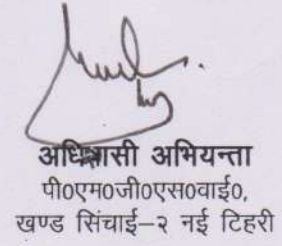 अधिशासी अभियन्ता
पी०एम०जी०एस०वाई०,
खण्ड सिंचाई–२ नई टिहरी